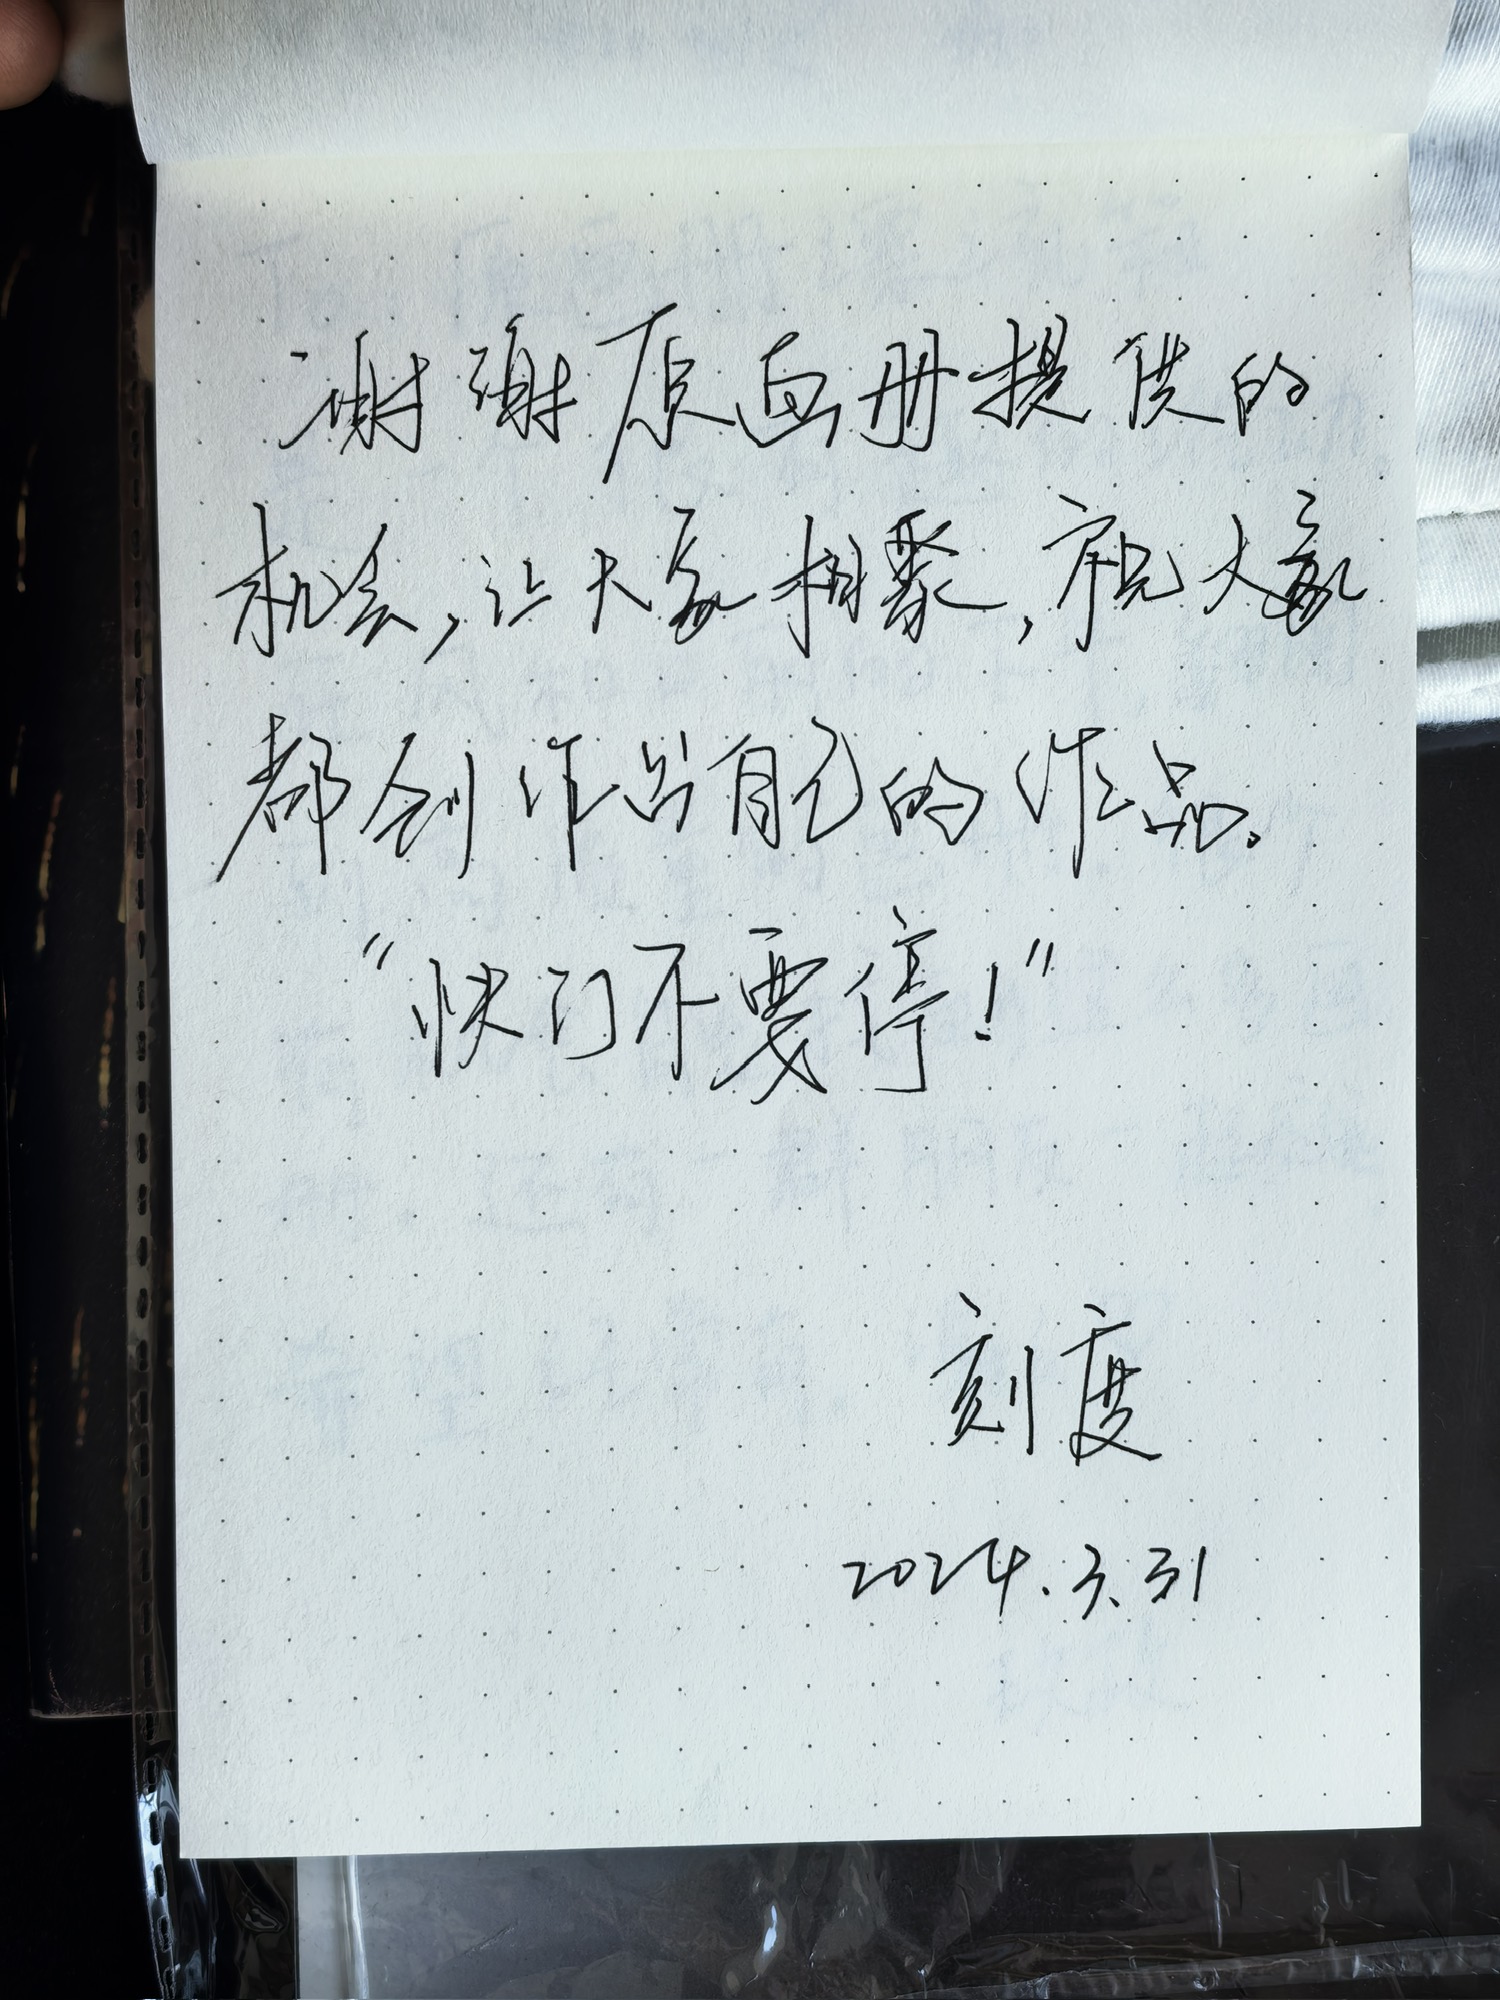 谢谢原直册提供的
机会,让大家相聚,祝大家
都创作出自己的作品。
“快门不要停!”
刻度
2024.3.31